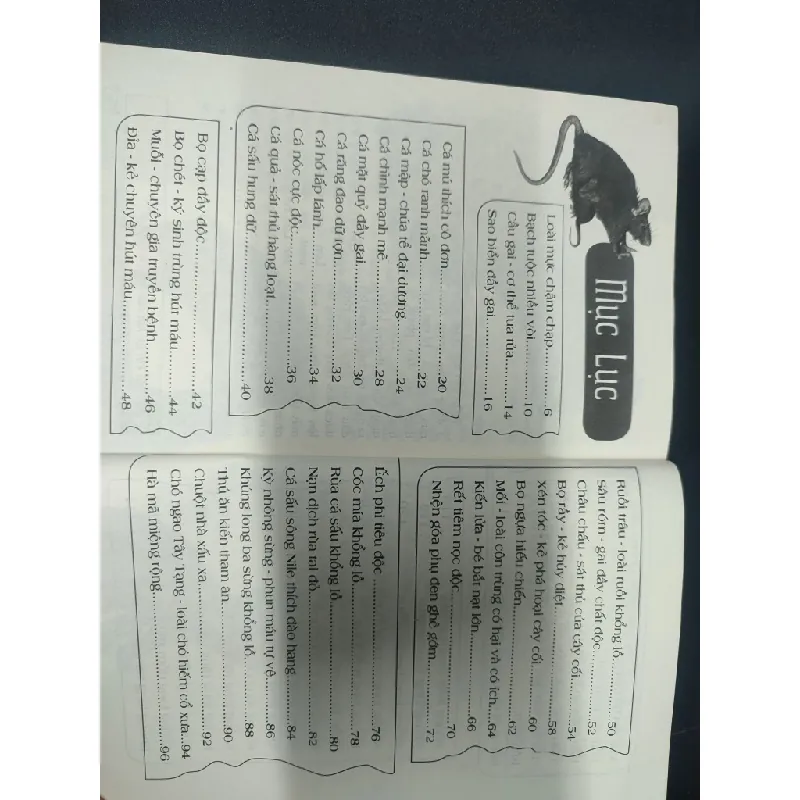 Mục Lục
Loài mực chậm chạp..............6
Bạch tuộc nhiều vòi..............10
Cầu gai - cơ thể tua rủa........14
Sao biển đầy gai..................16
Cá mú thích cô đơn..............20
Cá chó ranh mãnh..............22
Cá mập - chúa tể đại dương..........24
Cá chình mạnh mẽ..............28
Cá mặt quỷ đầy gai..............30
Cá răng đao dữ tợn..............32
Cá hố lấp lánh..............34
Cá nóc cực độc..............36
Cá quả - sát thủ hàng loạt..............38
Cá sấu hung dữ..............40
Bọ cạp đầy độc..............42
Bọ chét - ký sinh trùng hút máu........44
Muỗi - chuyên gia truyền bệnh..........46
Đỉa - kẻ chuyên hút máu..............48
Ruồi trâu - loài ruồi khổng lồ..........50
Sâu róm - gai đầy chất độc............52
Châu chấu - sát thủ của cây cối........54
Bọ rầy - kẻ hủy diệt..............58
Xén tóc - kẻ phá hoại cây cối..........60
Bọ ngựa hiếu chiến..............62
Mối - loài côn trùng có hại và có ích....64
Kiến lửa - bé bắt nạt lớn..............66
Rết tiêm nọc độc..............70
Nhện góa phụ đen ghê gớm..............72
Ếch phi tiêu độc..............76
Cóc mía khổng lồ..............78
Rùa cá sấu khổng lồ..............80
Nạn dịch rùa tai đỏ..............82
Cá sấu sông Nile thích đào hang........84
Kỳ nhông sừng - phun máu tự vệ......86
Khủng long ba sừng khổng lồ..........88
Thú ăn kiến tham ăn..............90
Chuột nhà xấu xa..............92
Chó ngao Tây Tạng - loài chó hiếm cổ xưa...94
Hà mã miệng rộng..............96